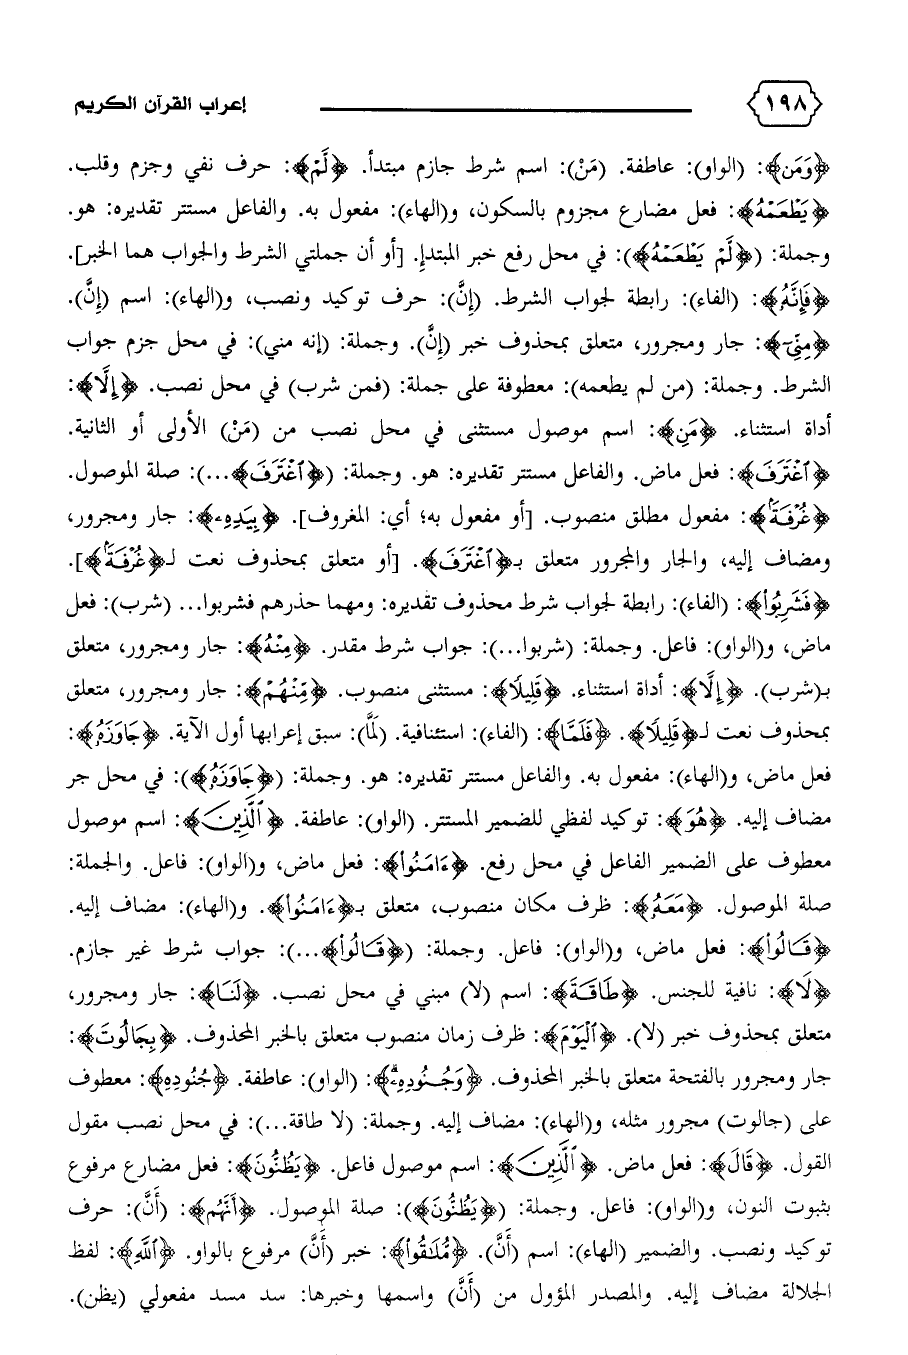 ١٩٨ إعراب القرآن الكريم
﴿وَمَن﴾: (الواو): عاطفة. (مَنْ): اسم شرط جازم مبتدأ. ﴿لَّمْ﴾: حرف نفي وجزم وقلب.
﴿يَطْعَمْهُ﴾: فعل مضارع مجزوم بالسكون، و(الهاء): مفعول به. والفاعل مستتر تقديره: هو.
وجملة: (﴿لَّمْ يَطْعَمْهُ﴾): في محل رفع خبر المبتدإ. [أو أن جملتي الشرط والجواب هما الخبر].
﴿فَإِنَّهُۥ﴾: (الفاء): رابطة لجواب الشرط. (إِنَّ): حرف توكيد ونصب، و(الهاء): اسم (إِنَّ).
﴿مِنِّىٓ﴾: جار ومجرور، متعلق بمحذوف خبر (إِنَّ). وجملة: (إنه مني): في محل جزم جواب
الشرط. وجملة: (من لم يطعمه): معطوفة على جملة: (فمن شرب) في محل نصب. ﴿إِلَّا﴾:
أداة استثناء. ﴿مَنِ﴾: اسم موصول مستثنى في محل نصب من (مَنْ) الأولى أو الثانية.
﴿ٱغْتَرَفَ﴾: فعل ماض. والفاعل مستتر تقديره: هو. وجملة: (﴿ٱغْتَرَفَ﴾...): صلة الموصول.
﴿غُرْفَةًۢ﴾: مفعول مطلق منصوب. [أو مفعول به؛ أي: المغروف]. ﴿بِيَدِهِۦ﴾: جار ومجرور،
ومضاف إليه، والجار والمجرور متعلق بـ﴿ٱغْتَرَفَ﴾. [أو متعلق بمحذوف نعت لـ﴿غُرْفَةًۢ﴾].
﴿فَشَرِبُوا۟﴾: (الفاء): رابطة لجواب شرط محذوف تقديره: ومهما حذرهم فشربوا... (شرب): فعل
ماض، و(الواو): فاعل. وجملة: (شربوا...): جواب شرط مقدر. ﴿مِنْهُ﴾: جار ومجرور، متعلق
بـ(شرب). ﴿إِلَّا﴾: أداة استثناء. ﴿قَلِيلًا﴾: مستثنى منصوب. ﴿مِّنْهُمْ﴾: جار ومجرور، متعلق
بمحذوف نعت لـ﴿قَلِيلًا﴾. ﴿فَلَمَّا﴾: (الفاء): استئنافية. (لمَّا): سبق إعرابها أول الآية. ﴿جَاوَزَهُۥ﴾:
فعل ماض، و(الهاء): مفعول به. والفاعل مستتر تقديره: هو. وجملة: (﴿جَاوَزَهُۥ﴾): في محل جر
مضاف إليه. ﴿هُوَ﴾: توكيد لفظي للضمير المستتر. (الواو): عاطفة. ﴿ٱلَّذِينَ﴾: اسم موصول
معطوف على الضمير الفاعل في محل رفع. ﴿ءَامَنُوا۟﴾: فعل ماض، و(الواو): فاعل. والجملة:
صلة الموصول. ﴿مَعَهُۥ﴾: ظرف مكان منصوب، متعلق بـ﴿ءَامَنُوا۟﴾. و(الهاء): مضاف إليه.
﴿قَالُوا۟﴾: فعل ماض، و(الواو): فاعل. وجملة: (﴿قَالُوا۟﴾...): جواب شرط غير جازم.
﴿لَا﴾: نافية للجنس. ﴿طَاقَةَ﴾: اسم (لا) مبني في محل نصب. ﴿لَنَا﴾: جار ومجرور،
متعلق بمحذوف خبر (لا). ﴿ٱلْيَوْمَ﴾: ظرف زمان منصوب متعلق بالخبر المحذوف. ﴿بِجَالُوتَ﴾:
جار ومجرور بالفتحة متعلق بالخبر المحذوف. ﴿وَجُنُودِهِۦ﴾: (الواو): عاطفة. ﴿جُنُودِهِ﴾: معطوف
على (جالوت) مجرور مثله، و(الهاء): مضاف إليه. وجملة: (لا طاقة...): في محل نصب مقول
القول. ﴿قَالَ﴾: فعل ماض. ﴿ٱلَّذِينَ﴾: اسم موصول فاعل. ﴿يَظُنُّونَ﴾: فعل مضارع مرفوع
بثبوت النون، و(الواو): فاعل. وجملة: (﴿يَظُنُّونَ﴾): صلة الموصول. ﴿أَنَّهُم﴾: (أَنَّ): حرف
توكيد ونصب. والضمير (الهاء): اسم (أَنَّ). ﴿مُّلَٰقُوا۟﴾: خبر (أَنَّ) مرفوع بالواو. ﴿ٱللَّهِ﴾: لفظ
الجلالة مضاف إليه. والمصدر المؤول من (أَنَّ) واسمها وخبرها: سد مسد مفعولي (يظن).